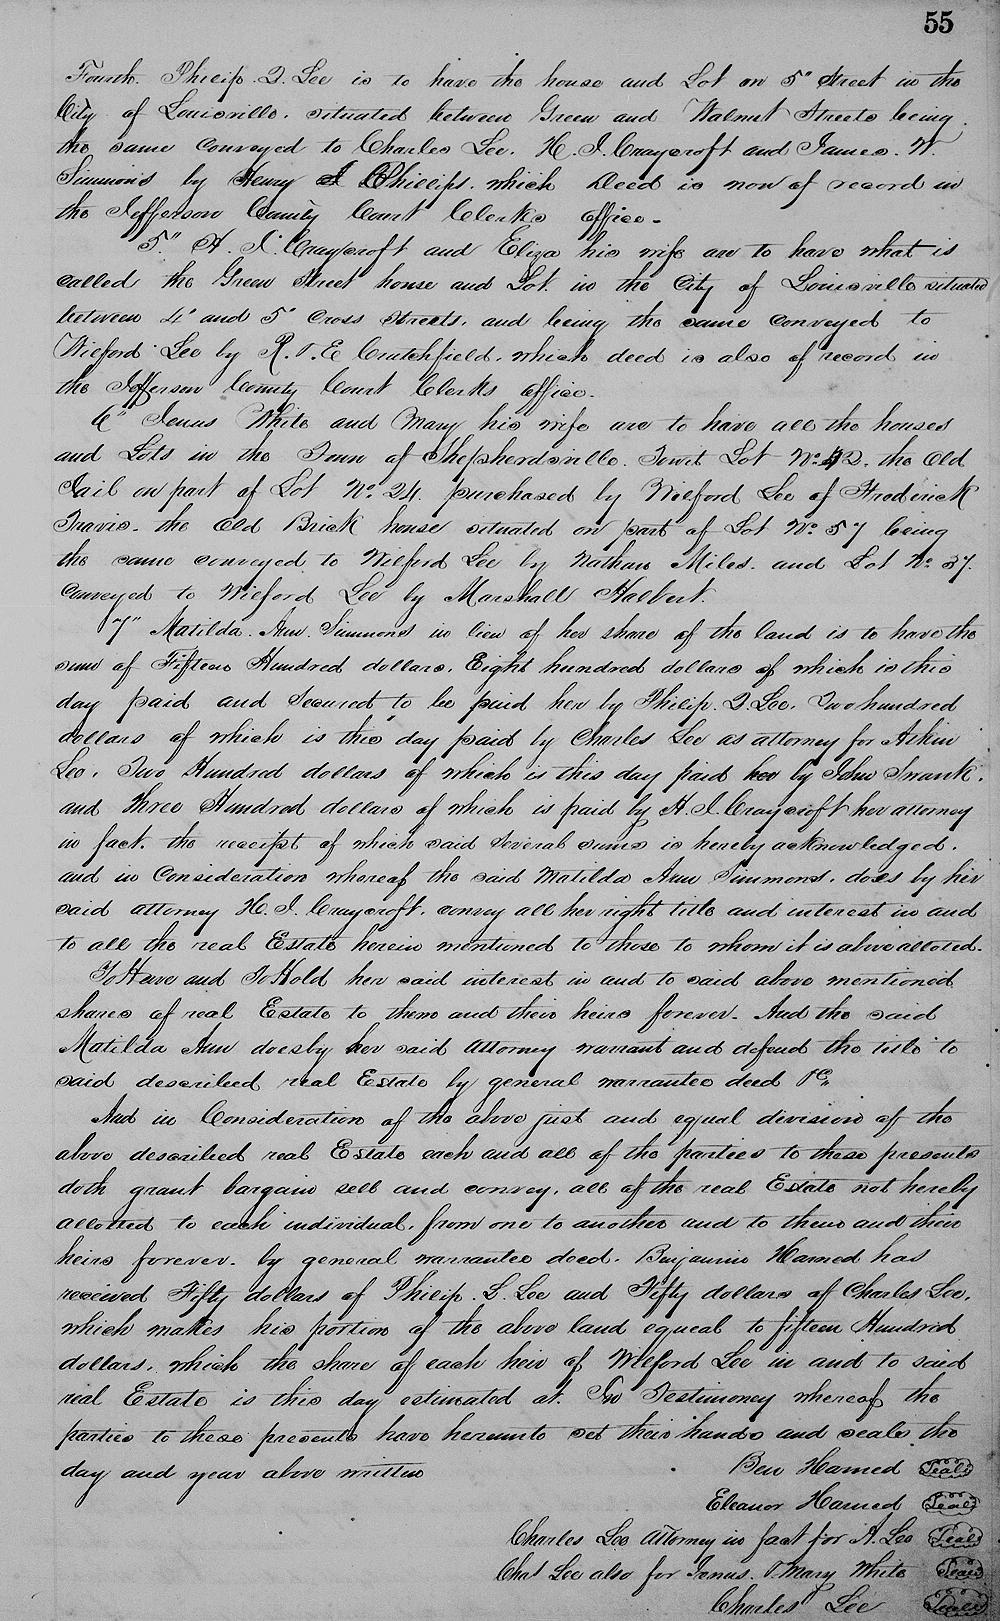 55
Fourth. Philip. Q. Lee is to have the house and Lot on 5" Street in the
City of Louisville. situated between Green and Walnut Streets being
the same conveyed to Charles Lee. H. I. Craycroft and James. W.
Simmons by Henry Phillips. which Deed is now of record in
the Jefferson County Court Clerks office-
5" H. I. Craycroft and Eliza his wife are to have what is
called the Green Street house and Lot. in the City of Louisville situated
between 4" and 5" Cross Streets. and being the same conveyed to
Wilford Lee by R. & E Crutchfield. which deed is also of record in
the Jefferson County Court Clerks office-
6" Jenus White and Mary his wife are to have all the houses
and Lots in the Town of Shepherdsville. Towit Lot No. 42. the Old
Jail on part of Lot No. 24. purchased by Wilford Lee of Frederick
Travis- the Old Brick house situated on part of Lot No. 57 being
the same conveyed to Wilford Lee by Nathan Miles. and Lot No. 37.
conveyed to Wilford Lee by Marshall Halbert.
7" Matilda. Ann. Simmons in lieu of her share of the land is to have the
sum of Fifteen Hundred dollars. Eight hundred dollars of which is this
day paid and secured to be paid her by Philip. Q. Lee. Two hundred
dollars of which is this day paid by Charles Lee as attorney for Atkin
Lee. Two Hundred dollars of which is this day paid her by John Swank.
and three Hundred dollars of which is paid by H. I. Craycroft her attorney
in fact. the receipt of which said several sums is hereby acknowledged.
and in Consideration whereof the said Matilda Ann Simmons. does by her
said attorney H. I. Craycroft. convey all her right title and interest in and
to all the real Estate herein mentioned to those to whom it is above alloted.
To Have and To Hold her said interest in and to said above mentioned
shares of real Estate to them and their heirs forever- And the said
Matilda Ann does by her said Attorney warrant and defend the title to
said described real Estate by general warrantee deed &c.
And in Consideration of the above just and equal division of the
above described real Estate each and all of the parties to these presents
doth grant bargain sell and convey. all of the real Estate not hereby
allotted to each individual. from one to another and to them and their
heirs forever- by general warrantee deed. Benjamin Harned has
received Fifty dollars of Philip. Q. Lee and Fifty dollars of Charles Lee.
which makes his portion of the above land equeal to fifteen Hundred
dollars. which the share of each heir of Wilford Lee in and to said
real Estate is this day estimated at. In Testimoney whereof the
parties to these presents have hereunto set their hands and seals the
day and year above written
Ben Harned Seal
Eleanor Harned Seal
Charles Lee Attorney in fact for A. Lee Seal
Chas Lee also for Jenus. & Mary White Seal
Charles Lee Seal